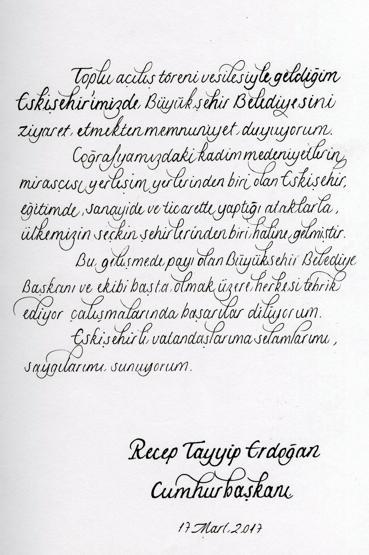 Toplu açılış töreni vesilesiyle geldiğim
Eskişehir'imizde Büyükşehir Belediyesini
ziyaret etmekten memnuniyet duyuyorum.
Coğrafyamızdaki kadim medeniyetlerin
mirasçısı yerleşim yerlerinden biri olan Eskişehir,
eğitimde, sanayide ve ticarette yaptığı ataklarla,
ülkemizin seçkin şehirlerinden biri haline gelmiştir.
Bu gelişmede payı olan Büyükşehir Belediye
Başkanı ve ekibi başta olmak üzere herkesi tebrik
ediyor çalışmalarında başarılar diliyorum.
Eskişehirli vatandaşlarıma selamlarımı,
saygılarımı sunuyorum.
Recep Tayyip Erdoğan
Cumhurbaşkanı
17 Mart 2017